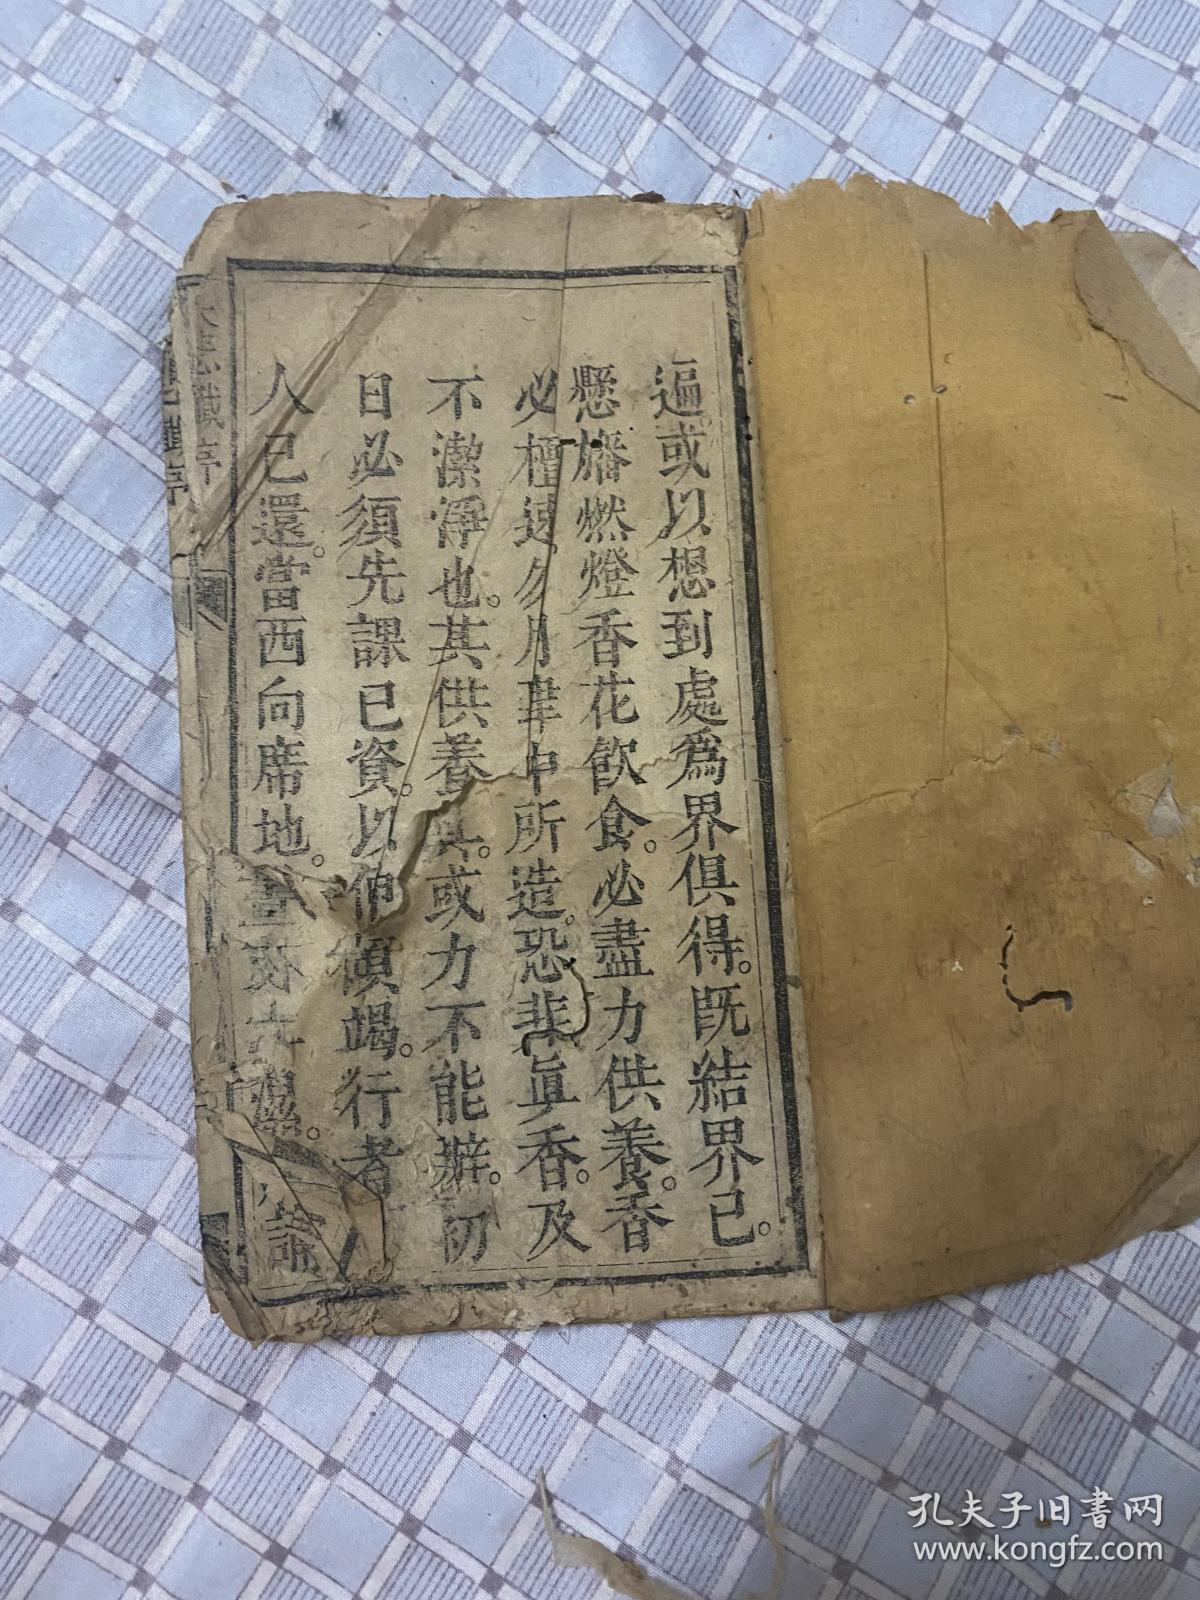 遍。或以想到處爲界俱得。既結界已。
懸旛燃燈香花飲食。必盡力供養。香
必檀速。勿月聿中所造。恐非眞香。及
不潔淨也。其供養具。或力不能辦。初
日必須先課已資。以伸傾竭。行者
人已還。當西向席地。
孔夫子旧书网
www.kongfz.com